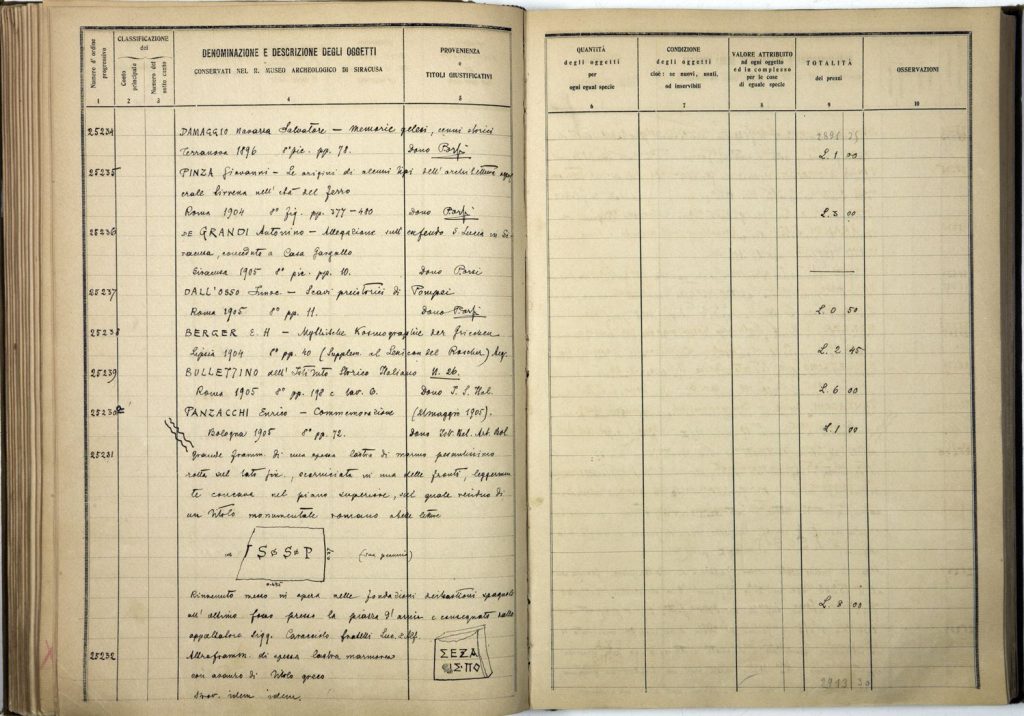 Numero d'ordine progressivo
CLASSIFICAZIONE del
Conto principale
Numero del sotto conto
DENOMINAZIONE E DESCRIZIONE DEGLI OGGETTI
CONSERVATI NEL R. MUSEO ARCHEOLOGICO DI SIRACUSA
PROVENIENZA
e
TITOLI GIUSTIFICATIVI
1 2 3 4 5
QUANTITÀ degli oggetti per ogni egual specie
CONDIZIONE degli oggetti cioè: se nuovi, usati, od inservibili
VALORE ATTRIBUITO ad ogni oggetto ed in complesso per le cose di eguale specie
TOTALITÀ dei prezzi
OSSERVAZIONI
6 7 8 9 10
2891 25
25234 DAMAGGIO Navarra Salvatore – Memorie gelesi, cenni storici
Terranova 1896 8° pic. pp. 78. Dono L. 1 00
25235 PINZA Giovanni – Le origini di alcuni tipi dell'architettura
crale tirrena nell'età del ferro
Roma 1904 8° fig. pp. 377–480 Dono L. 3 00
25236 DE GRANDI Antonino – Allegazione sull'exfeudo S. Lucia in Si-
racusa, conceduto a Casa Gargallo
Siracusa 1905 8° pic. pp. 10. Dono
25237 DALL'OSSO – Scavi preistorici di Pompei
Roma 1905 8° pp. 11. Dono L. 0 50
25238 BERGER E. H – Mythische Kosmographie der Griechen
Lipsia 1904 8° pp. 40 (Supplem. al Lexicon del Roscher) Acq. L. 2 45
25239 BULLETTINO dell'Istituto Storico Italiano N. 26.
Roma 1905 8° pp. 198 e tav. 6. Dono I. S. Ital. L. 6 00
25230 PANZACCHI Enrico – Commemorazione (21 maggio 1905).
Bologna 1905 8° pp. 72. Dono Ist. Bel. Art. Bol L. 1 00
25231 Grande framm. di una spessa lastra di marmo pesantissimo
rotta nel lato fin., scorniciata in una delle fronti, leggermen
te concava nel piano superiore, sul quale residuo di
un titolo monumentale romano a belle lettere
S S P
Rinvenuto messo in opera nelle fondazioni dei bastioni spagnoli
all'ultimo fosso presso la piazza d'armi e consegnato dallo
appaltatore Sigg. Caracciolo fratelli L. 8 00
25232 Altro framm. di spessa lastra marmorea
con avanzo di titolo greco
Prov. idem idem.
ΣΕΖΑ
ΙΣΠΟ
2913 30